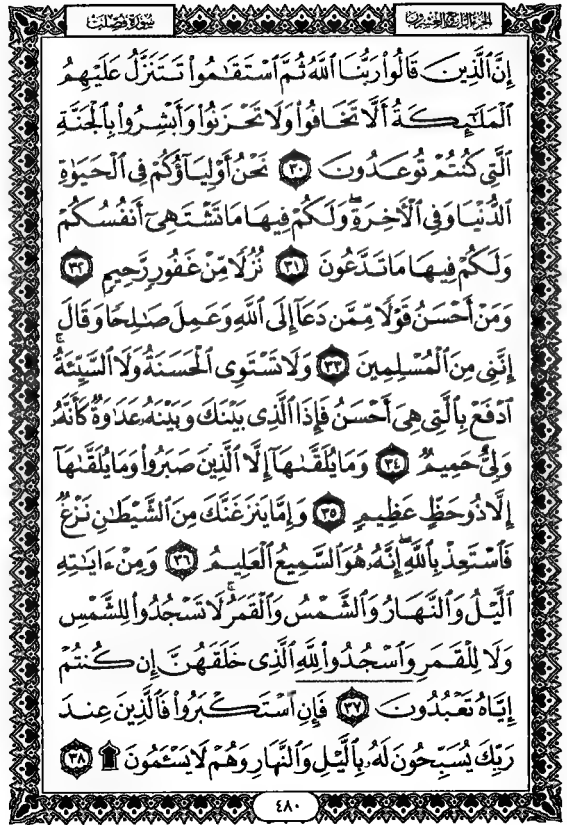 الجزء الرابع والعشرون
سورة فصلت
إِنَّ ٱلَّذِينَ قَالُوا۟ رَبُّنَا ٱللَّهُ ثُمَّ ٱسْتَقَٰمُوا۟ تَتَنَزَّلُ عَلَيْهِمُ
ٱلْمَلَٰٓئِكَةُ أَلَّا تَخَافُوا۟ وَلَا تَحْزَنُوا۟ وَأَبْشِرُوا۟ بِٱلْجَنَّةِ
ٱلَّتِى كُنتُمْ تُوعَدُونَ ٣٠ نَحْنُ أَوْلِيَآؤُكُمْ فِى ٱلْحَيَوٰةِ
ٱلدُّنْيَا وَفِى ٱلْءَاخِرَةِ ۖ وَلَكُمْ فِيهَا مَا تَشْتَهِىٓ أَنفُسُكُمْ
وَلَكُمْ فِيهَا مَا تَدَّعُونَ ٣١ نُزُلًا مِّنْ غَفُورٍ رَّحِيمٍ ٣٢
وَمَنْ أَحْسَنُ قَوْلًا مِّمَّن دَعَآ إِلَى ٱللَّهِ وَعَمِلَ صَٰلِحًا وَقَالَ
إِنَّنِى مِنَ ٱلْمُسْلِمِينَ ٣٣ وَلَا تَسْتَوِى ٱلْحَسَنَةُ وَلَا ٱلسَّيِّئَةُ ۚ
ٱدْفَعْ بِٱلَّتِى هِىَ أَحْسَنُ فَإِذَا ٱلَّذِى بَيْنَكَ وَبَيْنَهُۥ عَدَٰوَةٌ كَأَنَّهُۥ
وَلِىٌّ حَمِيمٌ ٣٤ وَمَا يُلَقَّىٰهَآ إِلَّا ٱلَّذِينَ صَبَرُوا۟ وَمَا يُلَقَّىٰهَآ
إِلَّا ذُو حَظٍّ عَظِيمٍ ٣٥ وَإِمَّا يَنزَغَنَّكَ مِنَ ٱلشَّيْطَٰنِ نَزْغٌ
فَٱسْتَعِذْ بِٱللَّهِ ۖ إِنَّهُۥ هُوَ ٱلسَّمِيعُ ٱلْعَلِيمُ ٣٦ وَمِنْ ءَايَٰتِهِ
ٱلَّيْلُ وَٱلنَّهَارُ وَٱلشَّمْسُ وَٱلْقَمَرُ ۚ لَا تَسْجُدُوا۟ لِلشَّمْسِ
وَلَا لِلْقَمَرِ وَٱسْجُدُوا۟ لِلَّهِ ٱلَّذِى خَلَقَهُنَّ إِن كُنتُمْ
إِيَّاهُ تَعْبُدُونَ ٣٧ فَإِنِ ٱسْتَكْبَرُوا۟ فَٱلَّذِينَ عِندَ
رَبِّكَ يُسَبِّحُونَ لَهُۥ بِٱلَّيْلِ وَٱلنَّهَارِ وَهُمْ لَا يَسْـَٔمُونَ ۩ ٣٨
٤٨٠